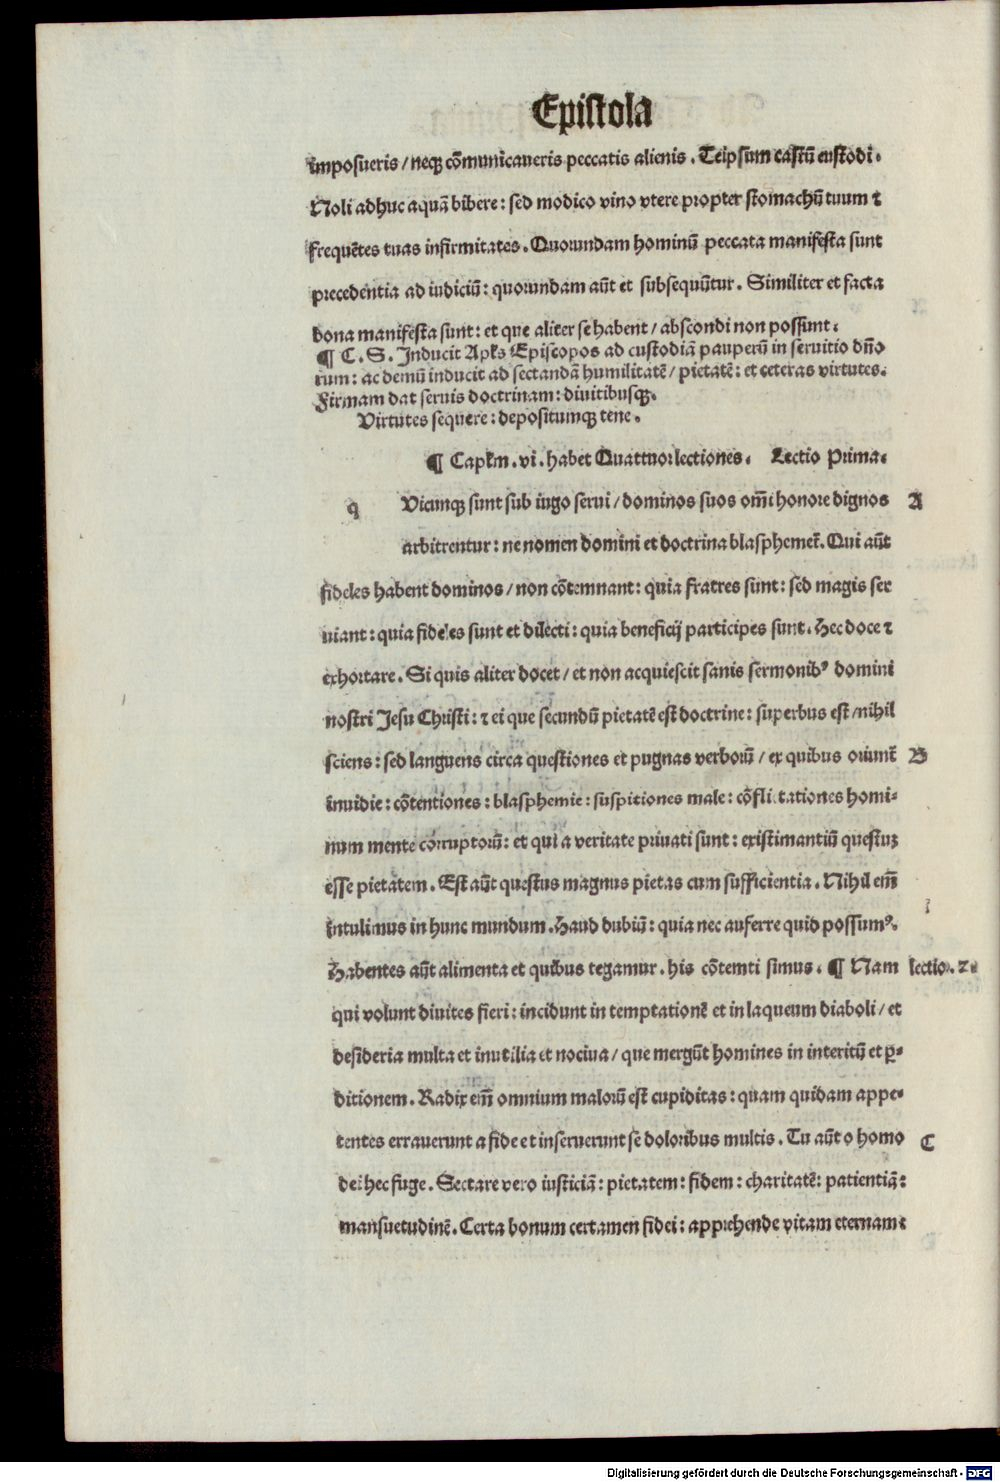 Epistola
imposueris / neqꝫ cōmunicaueris peccatis alienis. Teipsum castū custodi.
Noli adhuc aquā bibere: sed modico vino vtere propter stomachū tuum ⁊
frequētes tuas infirmitates. Quorundam hominū peccata manifesta sunt
precedentia ad iudiciū: quorundam aūt et subsequūtur. Similiter et facta
bona manifesta sunt: et que aliter se habent / abscondi non possunt.
¶ C. S. Inducit Apƚs Episcopos ad custodiā pauperū in seruitio dn̄o
rum: ac demū inducit ad sectandā humilitatē / pietatē: et ceteras virtutes.
Firmam dat seruis doctrinam: diuitibusqꝫ.
Virtutes sequere: depositumqꝫ tene.
¶ Capƚm. vi. habet Quattuor lectiones. Lectio Prima.
q Vicunqꝫ sunt sub iugo serui / dominos suos om̄i honore dignos A
arbitrentur: ne nomen domini et doctrina blasphemet̄. Qui aūt
fideles habent dominos / non cōtemnant: quia fratres sunt: sed magis ser
uiant: quia fideles sunt et dilecti: quia beneficij participes sunt. Hec doce ⁊
exhortare. Si quis aliter docet / et non acquiescit sanis sermonibꝰ domini
nostri Jesu Christi: ⁊ ei que secundū pietatē est doctrine: superbus est / nihil
sciens: sed languens circa questiones et pugnas verborū / ex quibus oriunt̄ B
inuidie: cōtentiones: blasphemie: suspitiones male: cōflictationes homi-
num mente corruptorū: et qui a veritate priuati sunt: existimantiū questuꝫ
esse pietatem. Est aūt questus magnus pietas cum sufficientia. Nihil em̄
intulimus in hunc mundum. Haud dubiū: quia nec auferre quid possumꝰ.
Habentes aūt alimenta et quibus tegamur. his cōtemti simus. ¶ Nam lectio. 2.
qui volunt diuites fieri: incidunt in temptationē et in laqueum diaboli / et
desideria multa et inutilia et nociua / que mergūt homines in interitū et ꝑ-
ditionem. Radix em̄ omnium malorū est cupiditas: quam quidam appe-
tentes errauerunt a fide et inseruerunt se doloribus multis. Tu aūt o homo C
dei hec fuge. Sectare vero iusticiā: pietatem: fidem: charitatē: patientiā:
mansuetudinē. Certa bonum certamen fidei: apprehende vitam eternam:
Digitalisierung gefördert durch die Deutsche Forschungsgemeinschaft - DFG